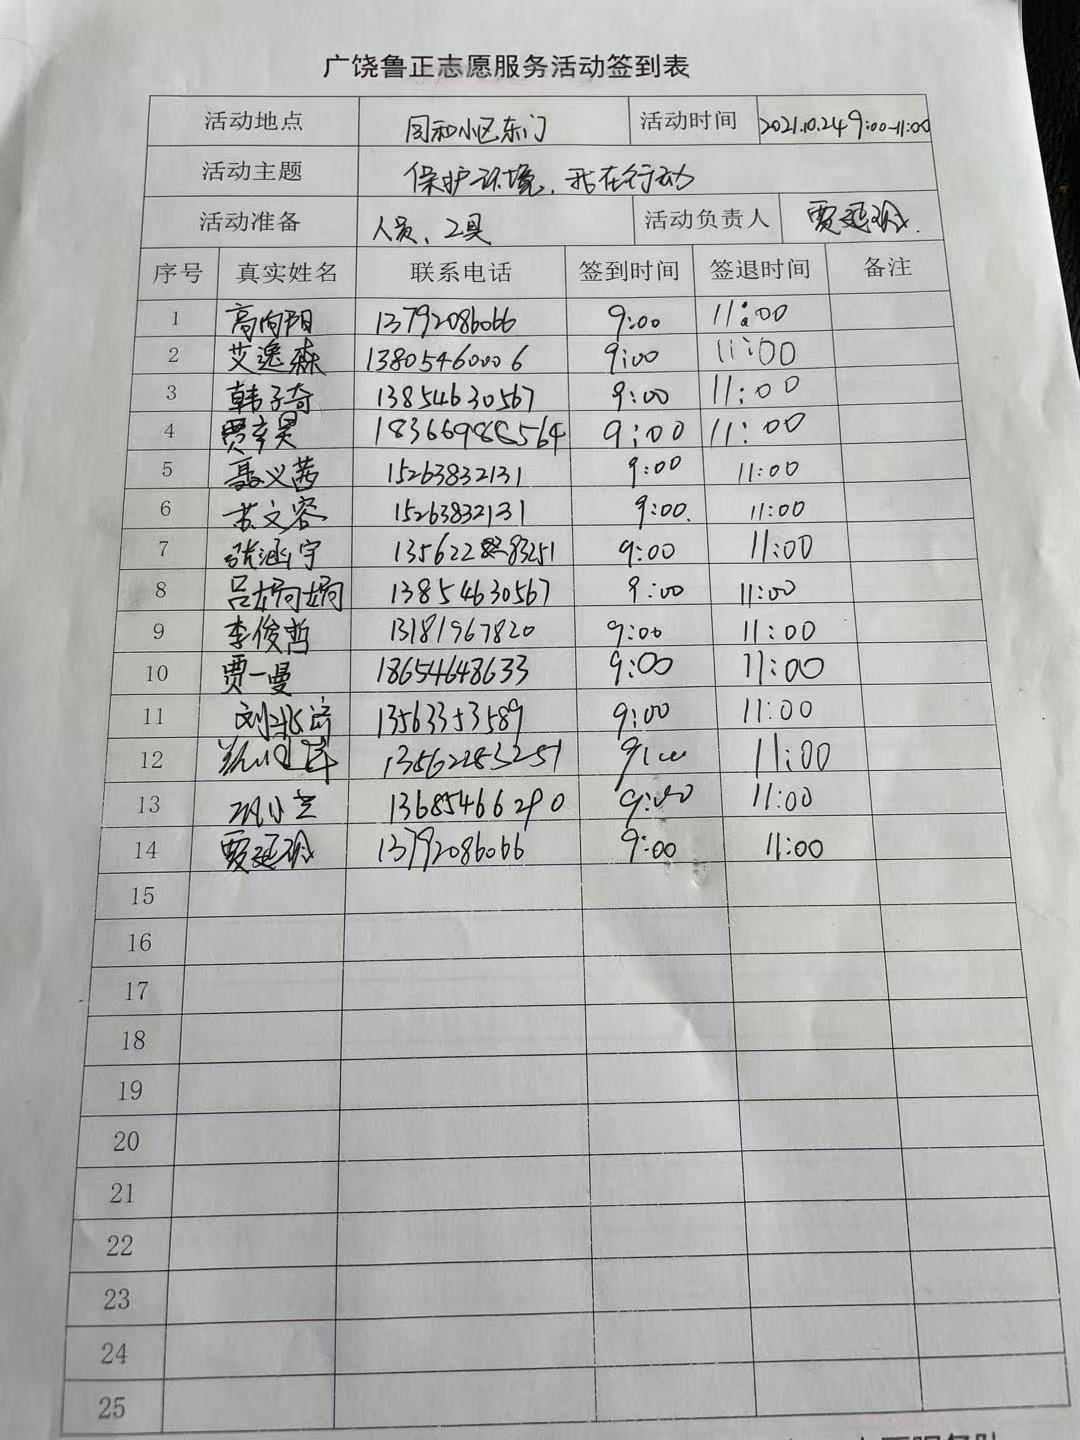 广饶鲁正志愿服务活动签到表
活动地点 同和小区东门 活动时间 2021.10.24 9:00-11:00
活动主题 保护环境，我在行动
活动准备 人员、工具 活动负责人 贾延
序号 真实姓名 联系电话 签到时间 签退时间 备注
1 高向阳 13792086066 9:00 11:00
2 艾逸森 13805460006 9:00 11:00
3 韩子奇 13854630567 9:00 11:00
4 贾亦昊 9:00 11:00
5 聂义茜 15263832131 9:00 11:00
6 苏文容 15263832131 9:00. 11:00
7 张涵宇 9:00 11:00
8 吕娟娟 13854630567 9:00 11:00
9 李俊哲 13181967820 9:00 11:00
10 贾一曼 18654648633 9:00 11:00
11 刘兆 13563353589 9:00 11:00
12 13562283251 9:00 11:00
13 小 13685466290 9:00 11:00
14 贾延 13792086066 9:00 11:00
15
16
17
18
19
20
21
22
23
24
25